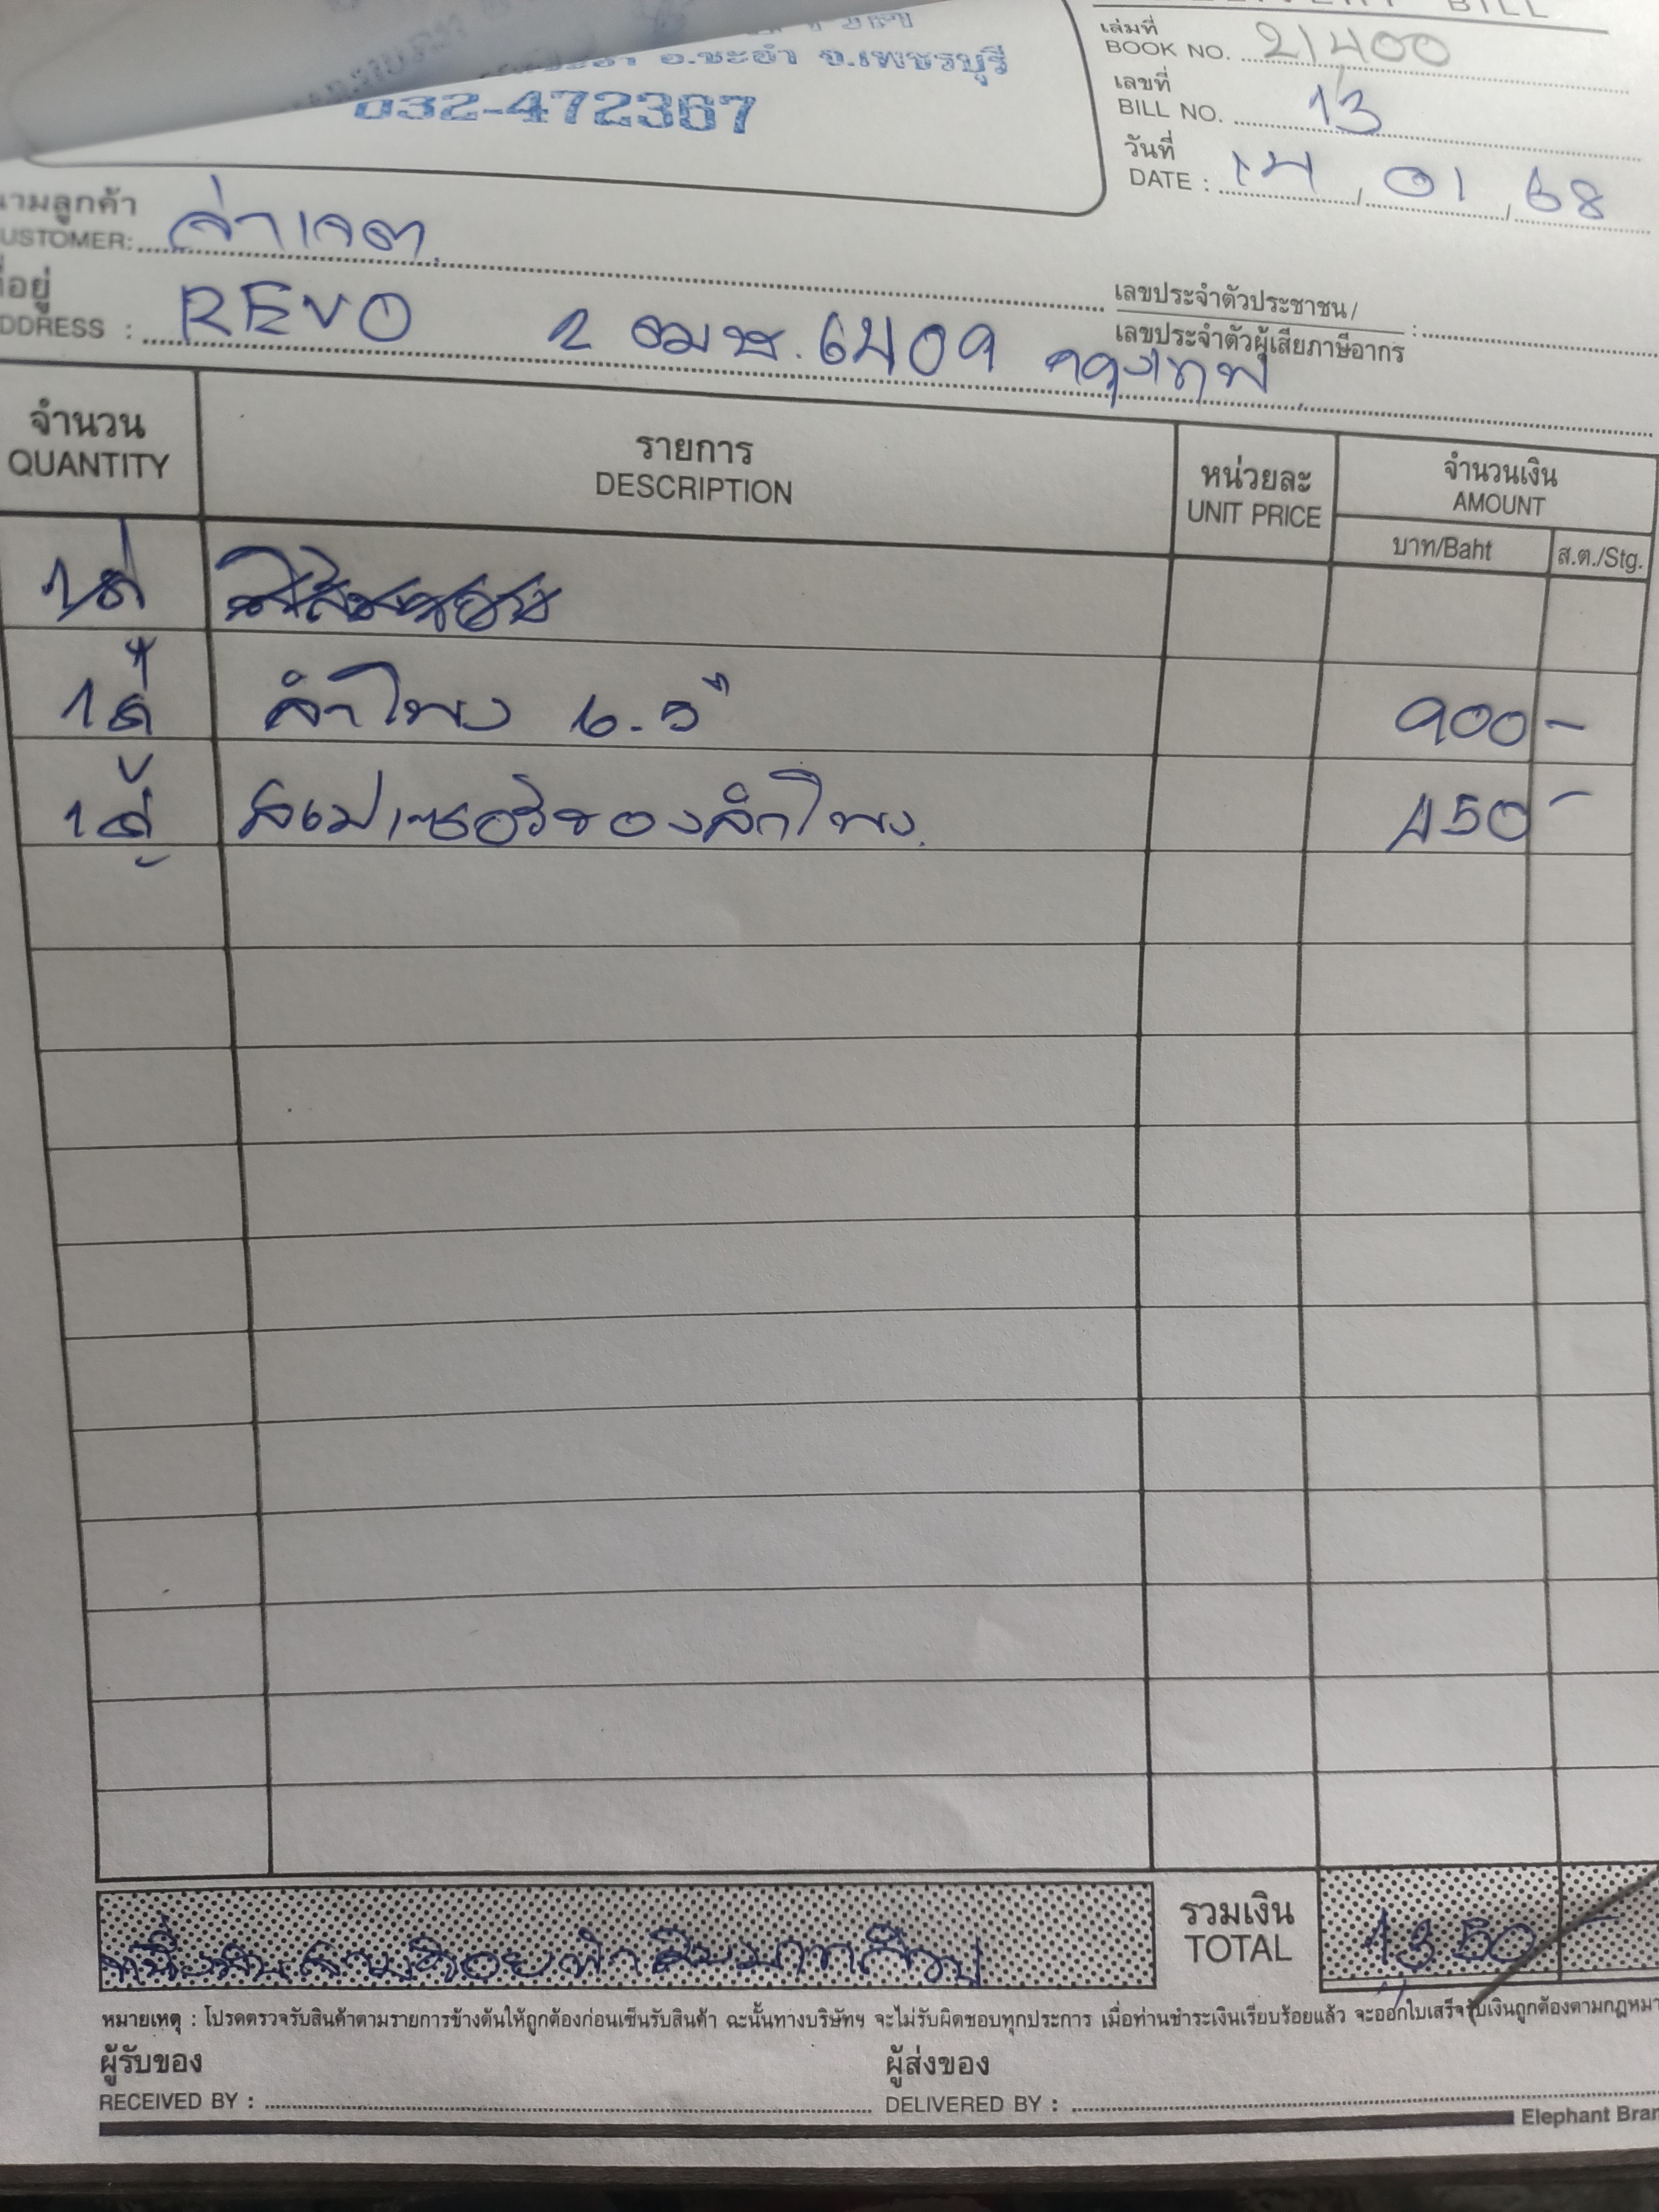 DELIVERY BILL
อ.ชะอำ จ.เพชรบุรี
032-472367
เล่มที่
BOOK NO. 21400
เลขที่
BILL NO. 13
วันที่
DATE : 14 / 01 / 68
นามลูกค้า
CUSTOMER: จ่าเจต
ที่อยู่
ADDRESS : REVO 2 ฒษ. 6409 กรุงเทพ
เลขประจำตัวประชาชน /
เลขประจำตัวผู้เสียภาษีอากร :
จำนวน
QUANTITY
รายการ
DESCRIPTION
หน่วยละ
UNIT PRICE
จำนวนเงิน
AMOUNT
บาท/Baht
ส.ต./Stg.
1คู่ ลำโพง 6.5" 900 -
1คู่ สเปเซอร์รองลำโพง 450 -
หนึ่งพันสามร้อยห้าสิบบาทถ้วน
รวมเงิน
TOTAL
1350 -
หมายเหตุ : โปรดตรวจรับสินค้าตามรายการข้างต้นให้ถูกต้องก่อนเซ็นรับสินค้า ฉะนั้นทางบริษัทฯ จะไม่รับผิดชอบทุกประการ เมื่อท่านชำระเงินเรียบร้อยแล้ว จะออกใบเสร็จรับเงินถูกต้องตามกฎหมา
ผู้รับของ
RECEIVED BY :
ผู้ส่งของ
DELIVERED BY :
Elephant Bran